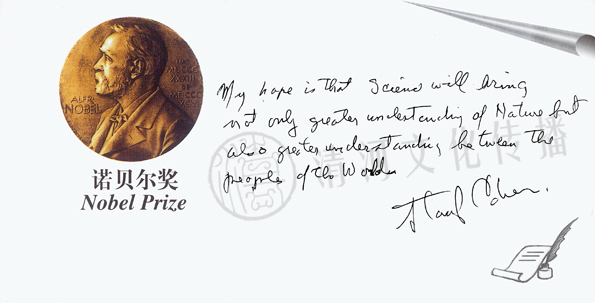 ALFR.
NOBEL
诺贝尔奖
Nobel Prize
My hope is that Science will bring
not only greater understanding of Nature but
also greater understanding between the
peoples of the World
文化传播